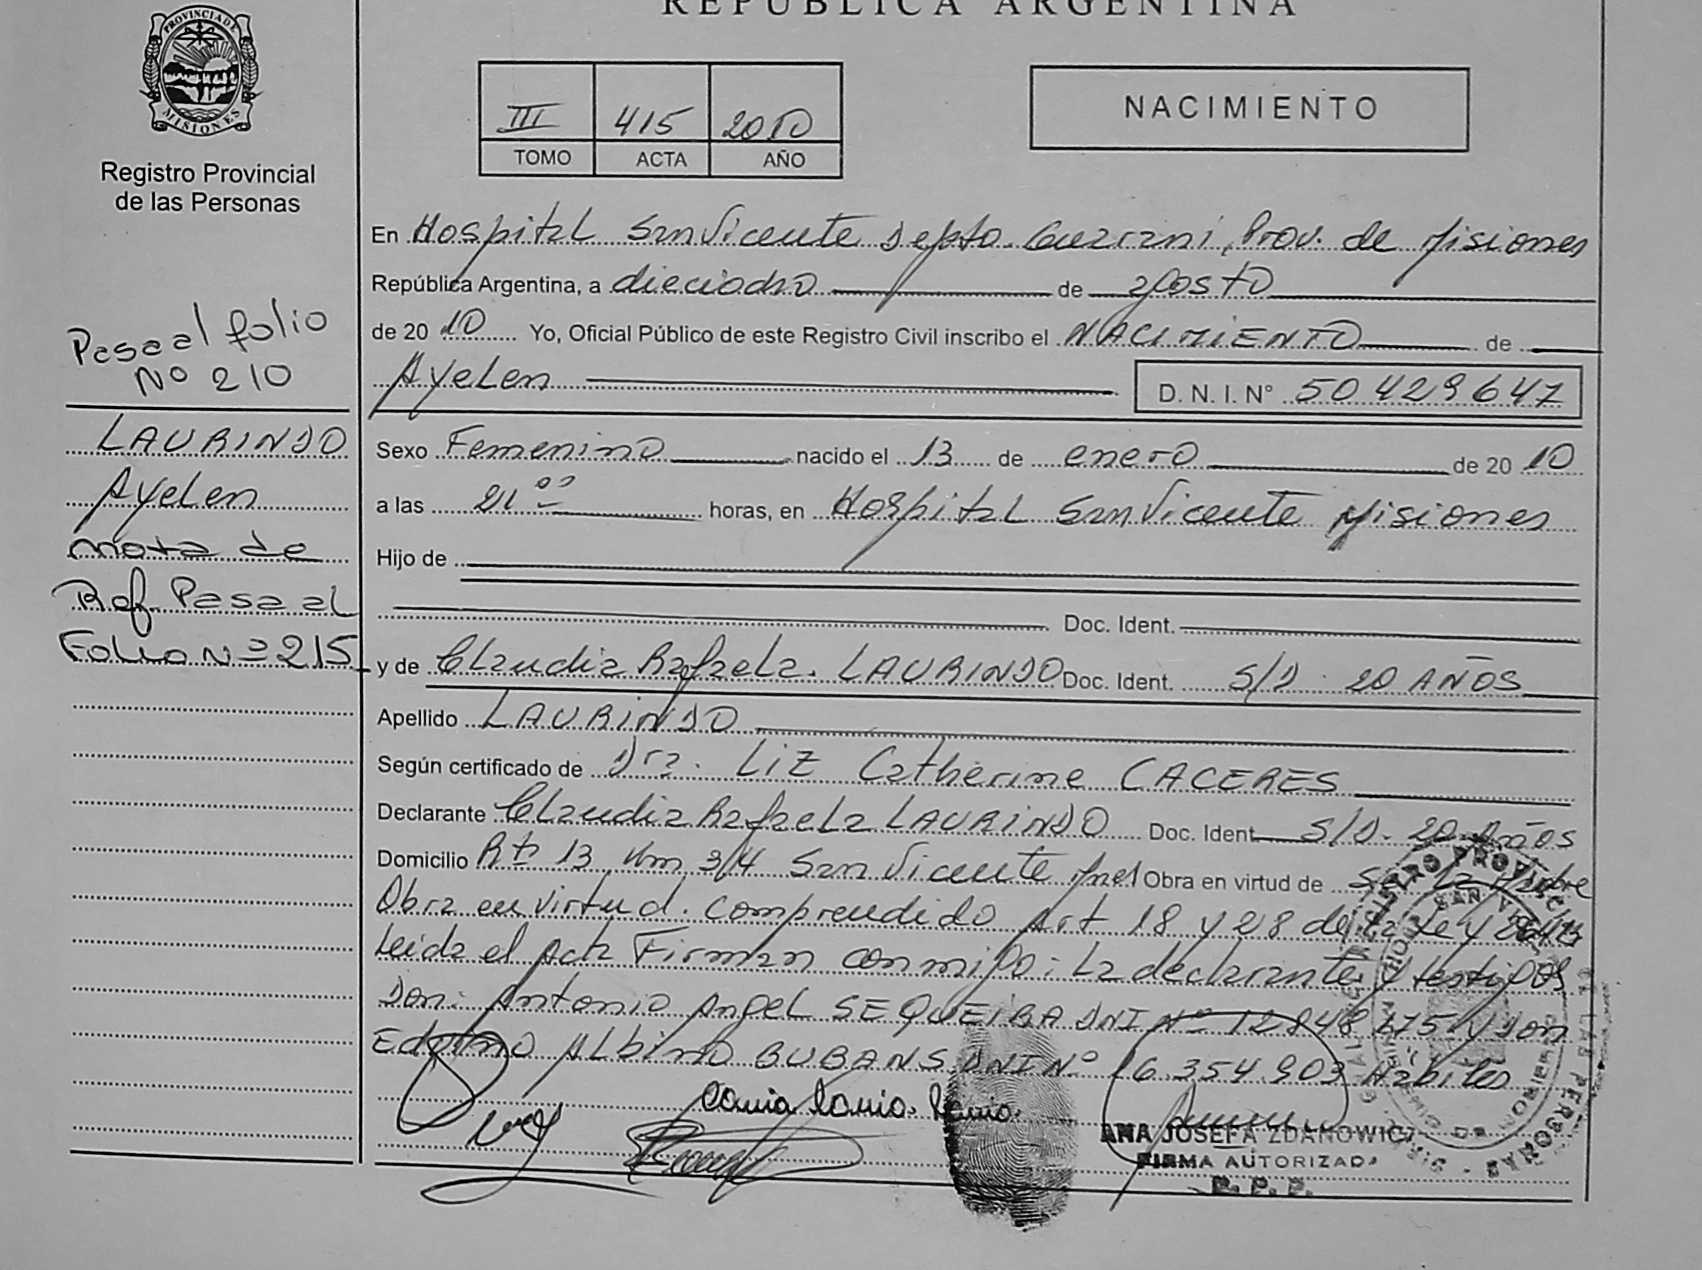 REPÚBLICA ARGENTINA
PROVINCIA DE
MISIONES
Registro Provincial
de las Personas
III 415 2010
TOMO ACTA AÑO
NACIMIENTO
En Hospital San Vicente Depto. Guarani, Prov. de Misiones
República Argentina, a dieciocho de agosto
de 20 10 Yo, Oficial Público de este Registro Civil inscribo el NACIMIENTO de
Ayelen D. N. I. N° 50 429 647
Sexo Femenino nacido el 13 de enero de 20 10
a las 21 00 horas, en Hospital San Vicente Misiones
Hijo de
Doc. Ident.
y de Claudia Rafaela. LAURINDO Doc. Ident. S/D. 20 AÑOS
Apellido LAURINDO
Según certificado de Dra. Liz Catherine CACERES
Declarante Claudia Rafaela LAURINDO Doc. Ident S/D. 20 Años
Domicilio Rta 13 Km 3/4 San Vicente Mnes Obra en virtud de ser la Madre
Obra en virtud. comprendido Art 18 y 28 de la Ley
Leida el Acta Firman conmigo: La declarante y testigos
Don: Antonio Angel SEQUEIRA DNI N° y Don
Albino BUBANS DNI N° 16.354.903 Hábiles
ANA JOSEFA ZDANOWICZ
FIRMA AUTORIZADA
R. P. P.
REGISTRO PROVINCIAL DE LAS PERSONAS
SAN VICENTE
Pasa al folio
N° 210
LAURINDO
Ayelen
nota de
Ref. Pasa al
Folio N° 215